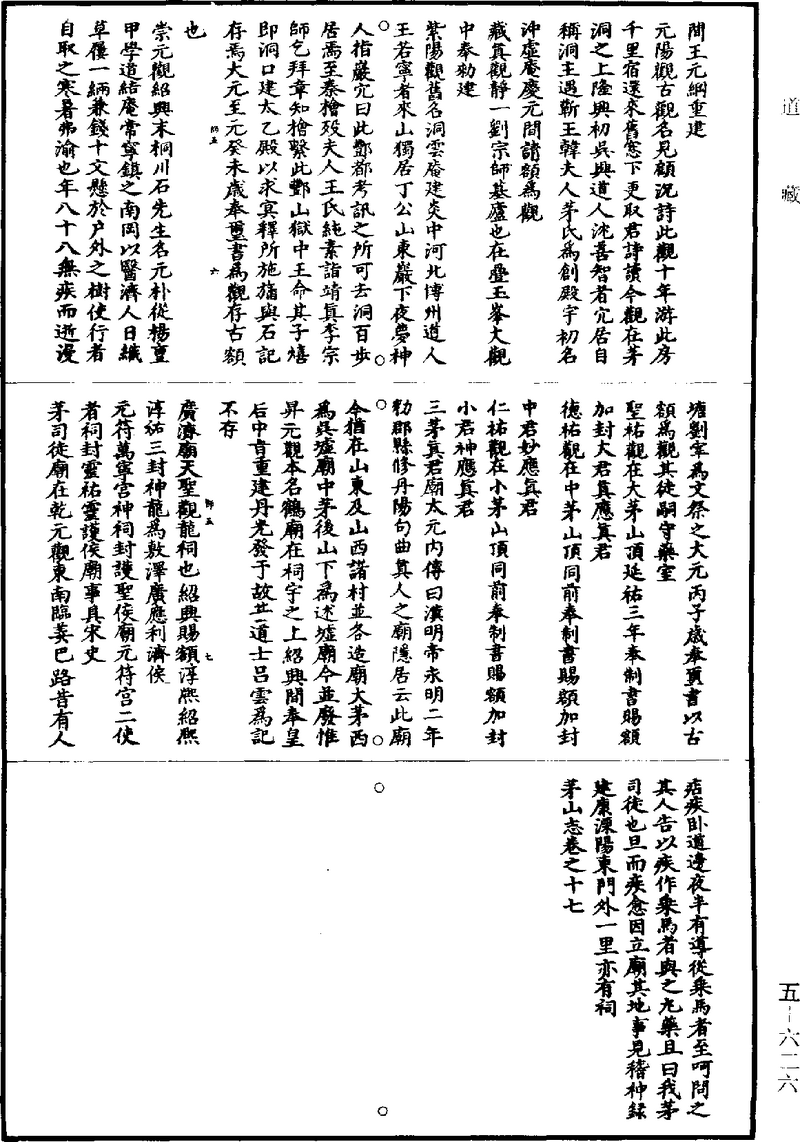 道藏
間王元綱重建
元陽觀古觀名見顧況詩此觀十年游此房
千里宿還來舊窓下更取君詩讀今觀在茅
洞之上隆興初吳興道人沈善智者穴居自
稱洞主遇蘄王韓夫人茅氏爲創殿宇初名
沖虛庵慶元間請額爲觀
藏真觀靜一劉宗師墓廬也在疊玉峯大觀
中奉勑建
紫陽觀舊名洞雲庵建炎中河北博州道人
王若寧者來山獨居丁公山東巖下夜夢神
人指巖穴曰此酆都考訊之所可去洞百步
居焉至秦檜歿夫人王氏純素詣靖真李宗
師乞拜章知檜繫此酆山獄中王命其子熺
即洞口建太乙殿以求冥釋所施旛與石記
存焉大元至元癸未歲奉璽書爲觀存古額
也
崇元觀紹興末桐川石先生名元朴從楊亶
甲學道結庵常寧鎮之南岡以醫濟人日織
草屨一緉兼錢十文懸於户外之樹使行者
自取之寒暑弗渝也年八十八無疾而逝漫
塘劉宰爲文祭之大元丙子歲奉璽書以古
額爲觀其徒嗣守藥室
聖祐觀在大茅山頂延祐三年奉制書賜額
加封大君真應真君
德祐觀在中茅山頂同前奉制書賜額加封
中君妙應真君
仁祐觀在小茅山頂同前奉制書賜額加封
小君神應真君
三茅真君廟太元内傳曰漢明帝永明二年
勑郡縣修丹陽句曲真人之廟隱居云此廟
今猶在山東及山西諸村並各造廟大茅西
爲吳墟廟中茅後山下爲述墟廟今並廢惟
昇元觀本名鶴廟在祠宇之上紹興間奉皇
后中旨重建丹光發于故井道士吕雲爲記
不存
廣濟廟天聖觀龍祠也紹興賜額淳熙紹熙
淳祐三封神龍爲敷澤廣應利濟侯
元符萬寧宫神祠封護聖侯廟元符宫二使
者祠封靈祐靈護侯廟事具宋史
茅司徒廟在乾元觀東南臨莫巴路昔有人
痁疾卧道邊夜半有導從乘馬者至呵問之
其人告以疾作乘馬者與之九藥且曰我茅
司徒也旦而疾愈因立廟其地事見稽神録
建康溧陽東門外一里亦有祠
茅山志卷之十七
五－六二六